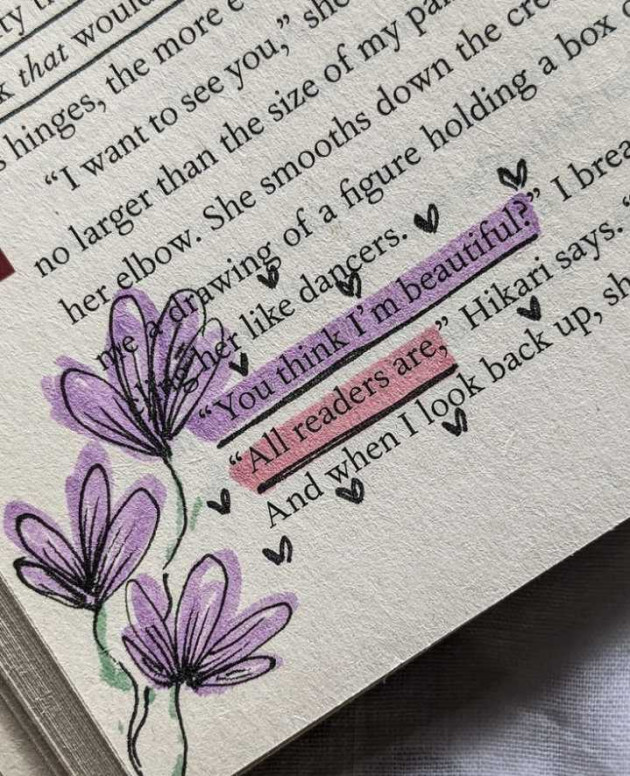 that
hinges, the more
“I want to see you,” she
no larger than the size of my
her elbow. She smooths down the
me a drawing of a figure holding a box
her like dancers.
“You think I’m beautiful?” I brea
“All readers are,” Hikari says. “
And when I look back up, sh